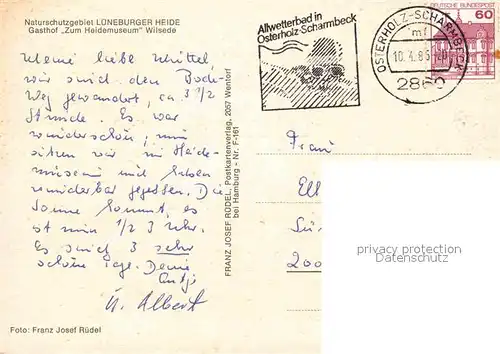 Naturschutzgebiet LÜNEBURGER HEIDE
Gasthof „Zum Heidemuseum" Wilsede
Meine liebe Mutti,
wir sind den
Weg gewandert, ca. 3 1/2
Stunde. Es war
wunderschön, nun
sitzen wir im Heide-
museum und haben
wunderbar gegessen. Die
Sonne kommt, es
ist nun 1/2 3 Uhr.
Es sind 3 sehr
schöne Tage. Deine
Antje
u. Albert
Foto: Franz Josef Rüdel
FRANZ JOSEF RÜDEL, Postkartenverlag, 2057 Wentorf
bei Hamburg - Nr. F-161
Allwetterbad in
Osterholz-Scharmbeck
OSTERHOLZ-SCHARMBECK
2860
DEUTSCHE BUNDESPOST
60
Frau
Ell
200
privacy protection
VERITAILLES